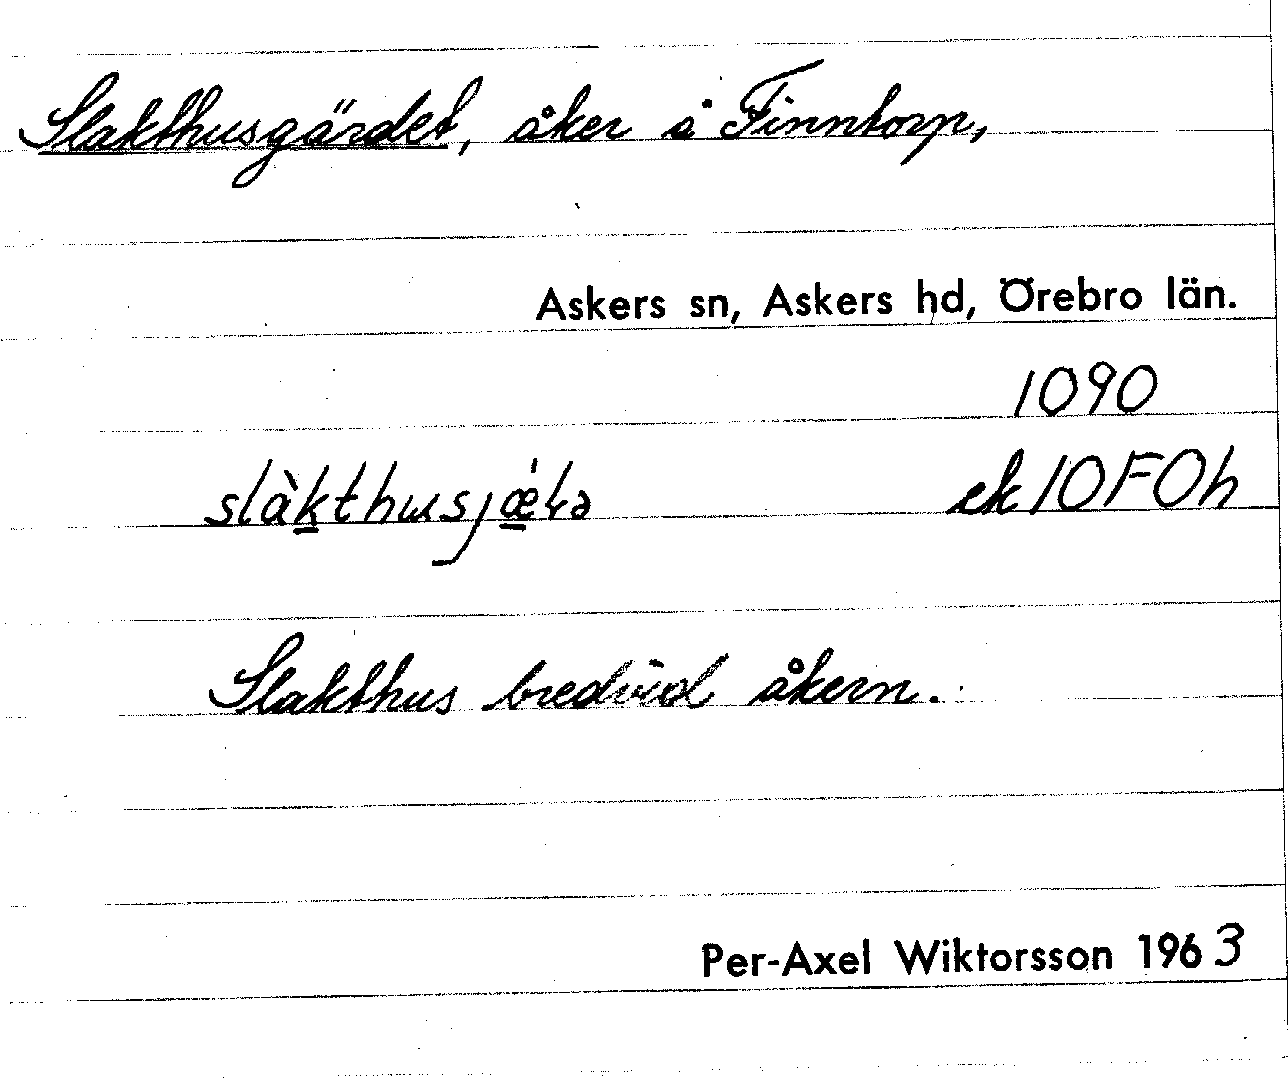 Slakthusgärdet, åker å Finntorp,
Askers sn, Askers hd, Örebro län.
1090
ek 10F0h
Slakthus bredvid åkern.
Per-Axel Wiktorsson 1963